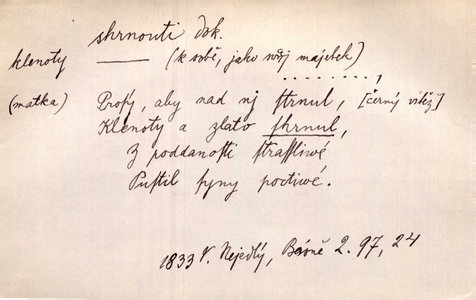 shrnouti dok.
klenoty —— (k sobě, jako svůj majetek)
. . . . . . . . ,
(matka) Profý, aby nad nj ſtrnul, [černý vítěz]
Klenoty a zlato ſhrnul,
Z poddanoſti ſtraſſliwé
Puſtil ſyny poctiwé.
1833 V. Nejedlý, Básně 2. 97, 24